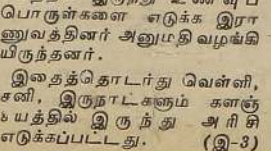 பொருள்களை எடுக்க இரா
ணுவத்தினர் அனுமதி வழங்கி
யிருந்தனர்.
இதைத்தொடர்து வெள்ளி,
சனி, இருநாட்களும் களஞ்
சியத்தில் இருந்து அரிசி
எடுக்கப்பட்டது. (இ-3)